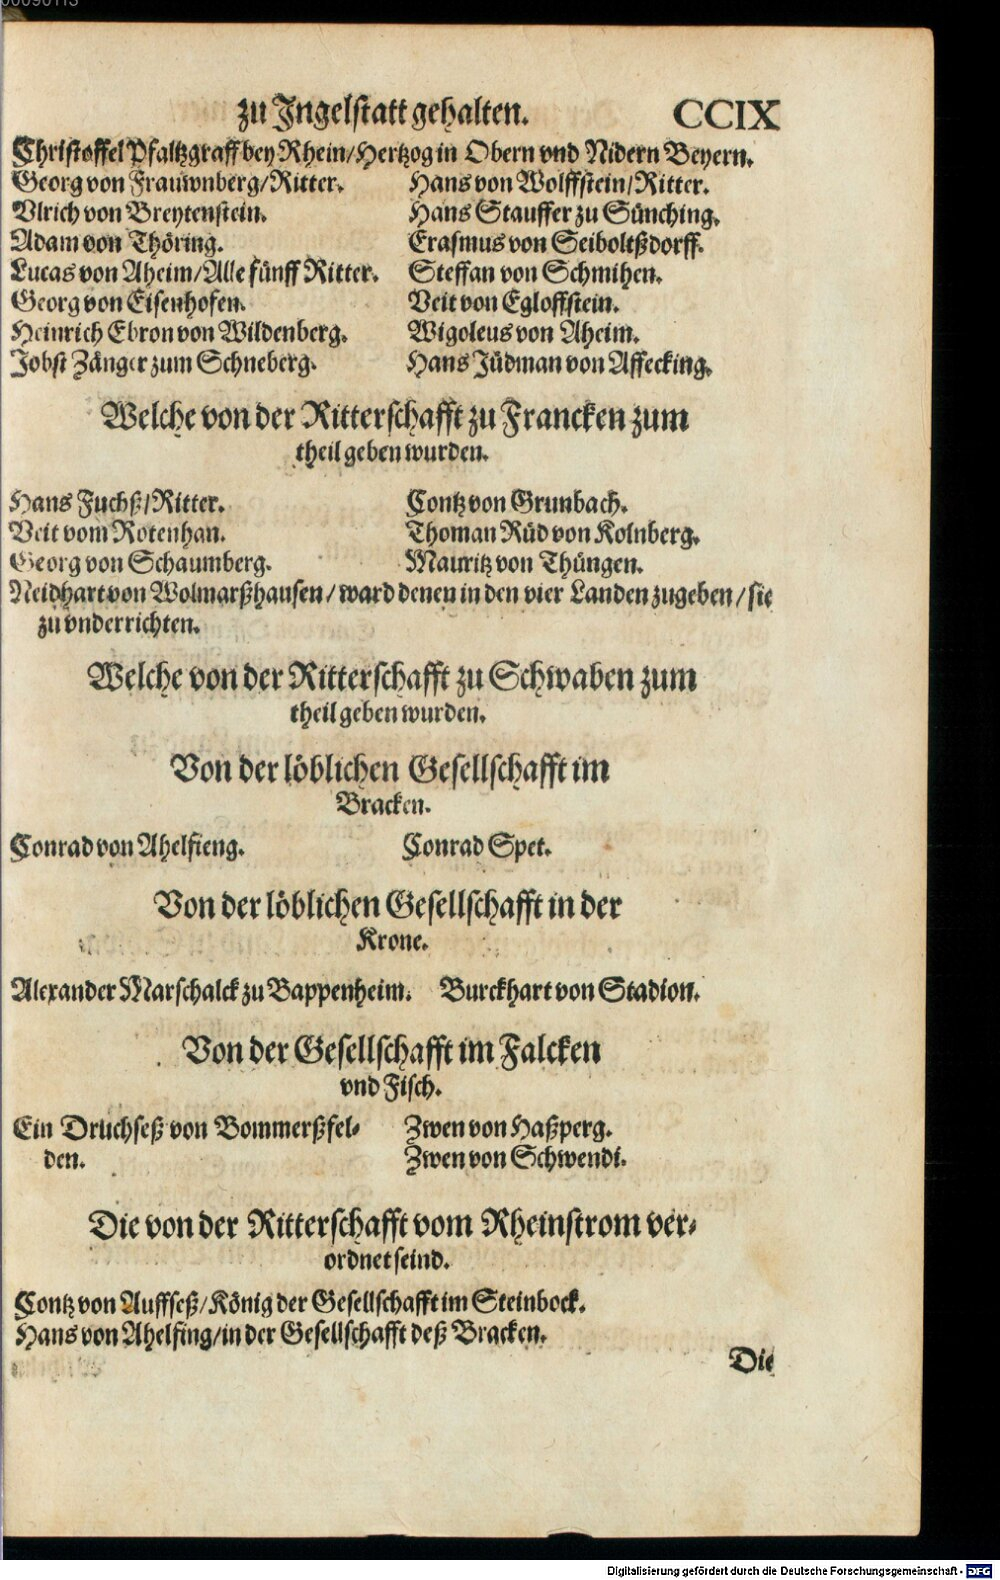 zu Jngelstatt gehalten. CCIX
Christoffel Pfaltzgraff bey Rhein/Hertzog in Obern vnd Nidern Beyern.
Georg von Frauwnberg/Ritter. Hans von Wolffstein/Ritter.
Vlrich von Breytenstein. Hans Stauffer zu Sünching.
Adam von Thöring. Erasmus von Seiboltßdorff.
Lucas von Aheim/Alle fünff Ritter. Steffan von Schmihen.
Georg von Eisenhofen. Veit von Egloffstein.
Heinrich Ebron von Wildenberg. Wigoleus von Aheim.
Jobst Zänger zum Schneberg. Hans Jüdman von Affecking.
Welche von der Ritterschafft zu Francken zum
theil geben wurden.
Hans Fuchß/Ritter. Contz von Grunbach.
Veit vom Rotenhan. Thoman Rüd von Kolnberg.
Georg von Schaumberg. Mauritz von Thüngen.
Neidhart von Wolmarßhausen/ward denen in den vier Landen zugeben/sie
zu vnderrichten.
Welche von der Ritterschafft zu Schwaben zum
theil geben wurden.
Von der löblichen Gesellschafft im
Bracken.
Conrad von Ahelfieng. Conrad Spet.
Von der löblichen Gesellschafft in der
Krone.
Alexander Marschalck zu Bappenheim. Burckhart von Stadion.
Von der Gesellschafft im Falcken
vnd Fisch.
Ein Druchseß von Bommerßfel- Zwen von Haßperg.
den. Zwen von Schwendi.
Die von der Ritterschafft vom Rheinstrom ver-
ordnet seind.
Contz von Auffseß/König der Gesellschafft im Steinbock.
Hans von Ahelfing/in der Gesellschafft deß Bracken.
Die
Digitalisierung gefördert durch die Deutsche Forschungsgemeinschaft - DFG